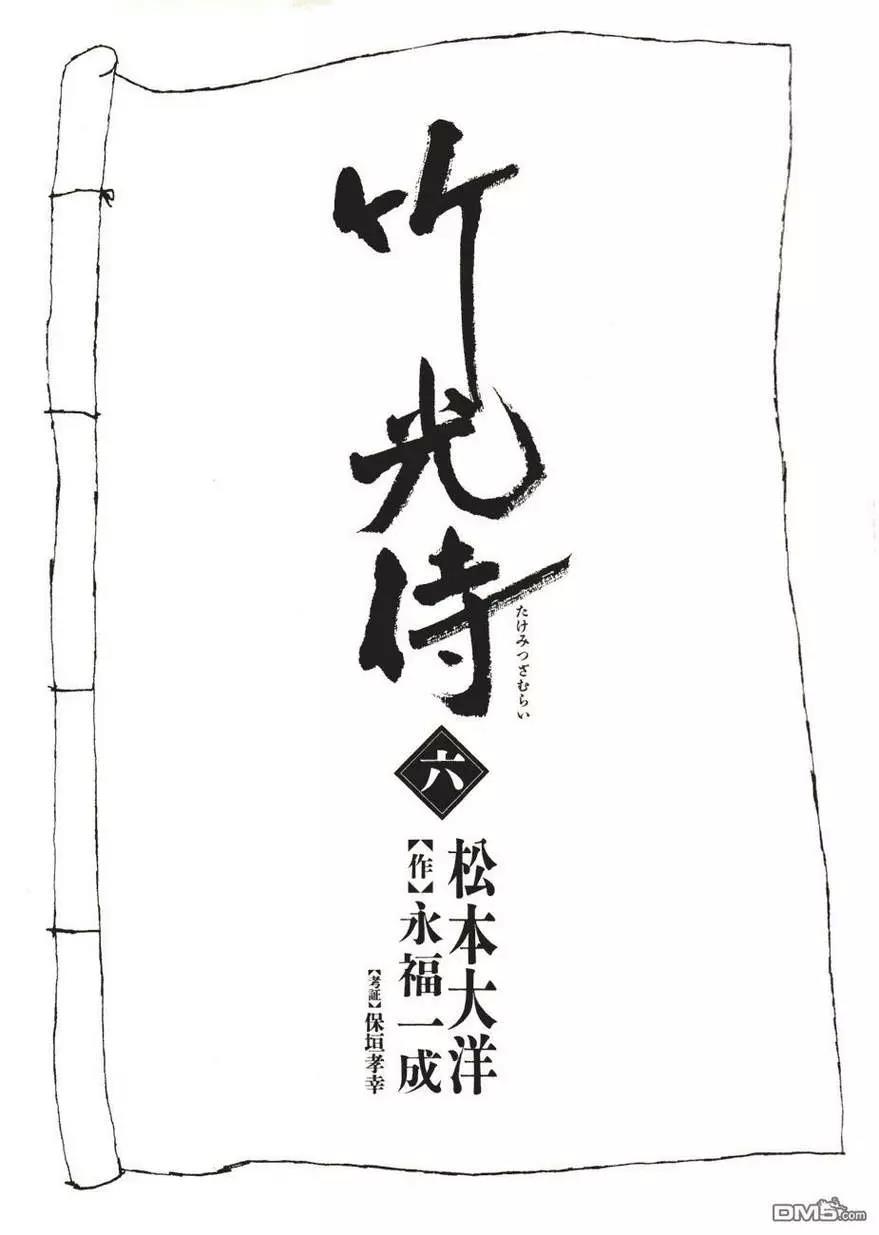 竹光侍
たけみつざむらい
六
松本大洋
【作】永福一成
【考証】保垣孝幸
DM5.com